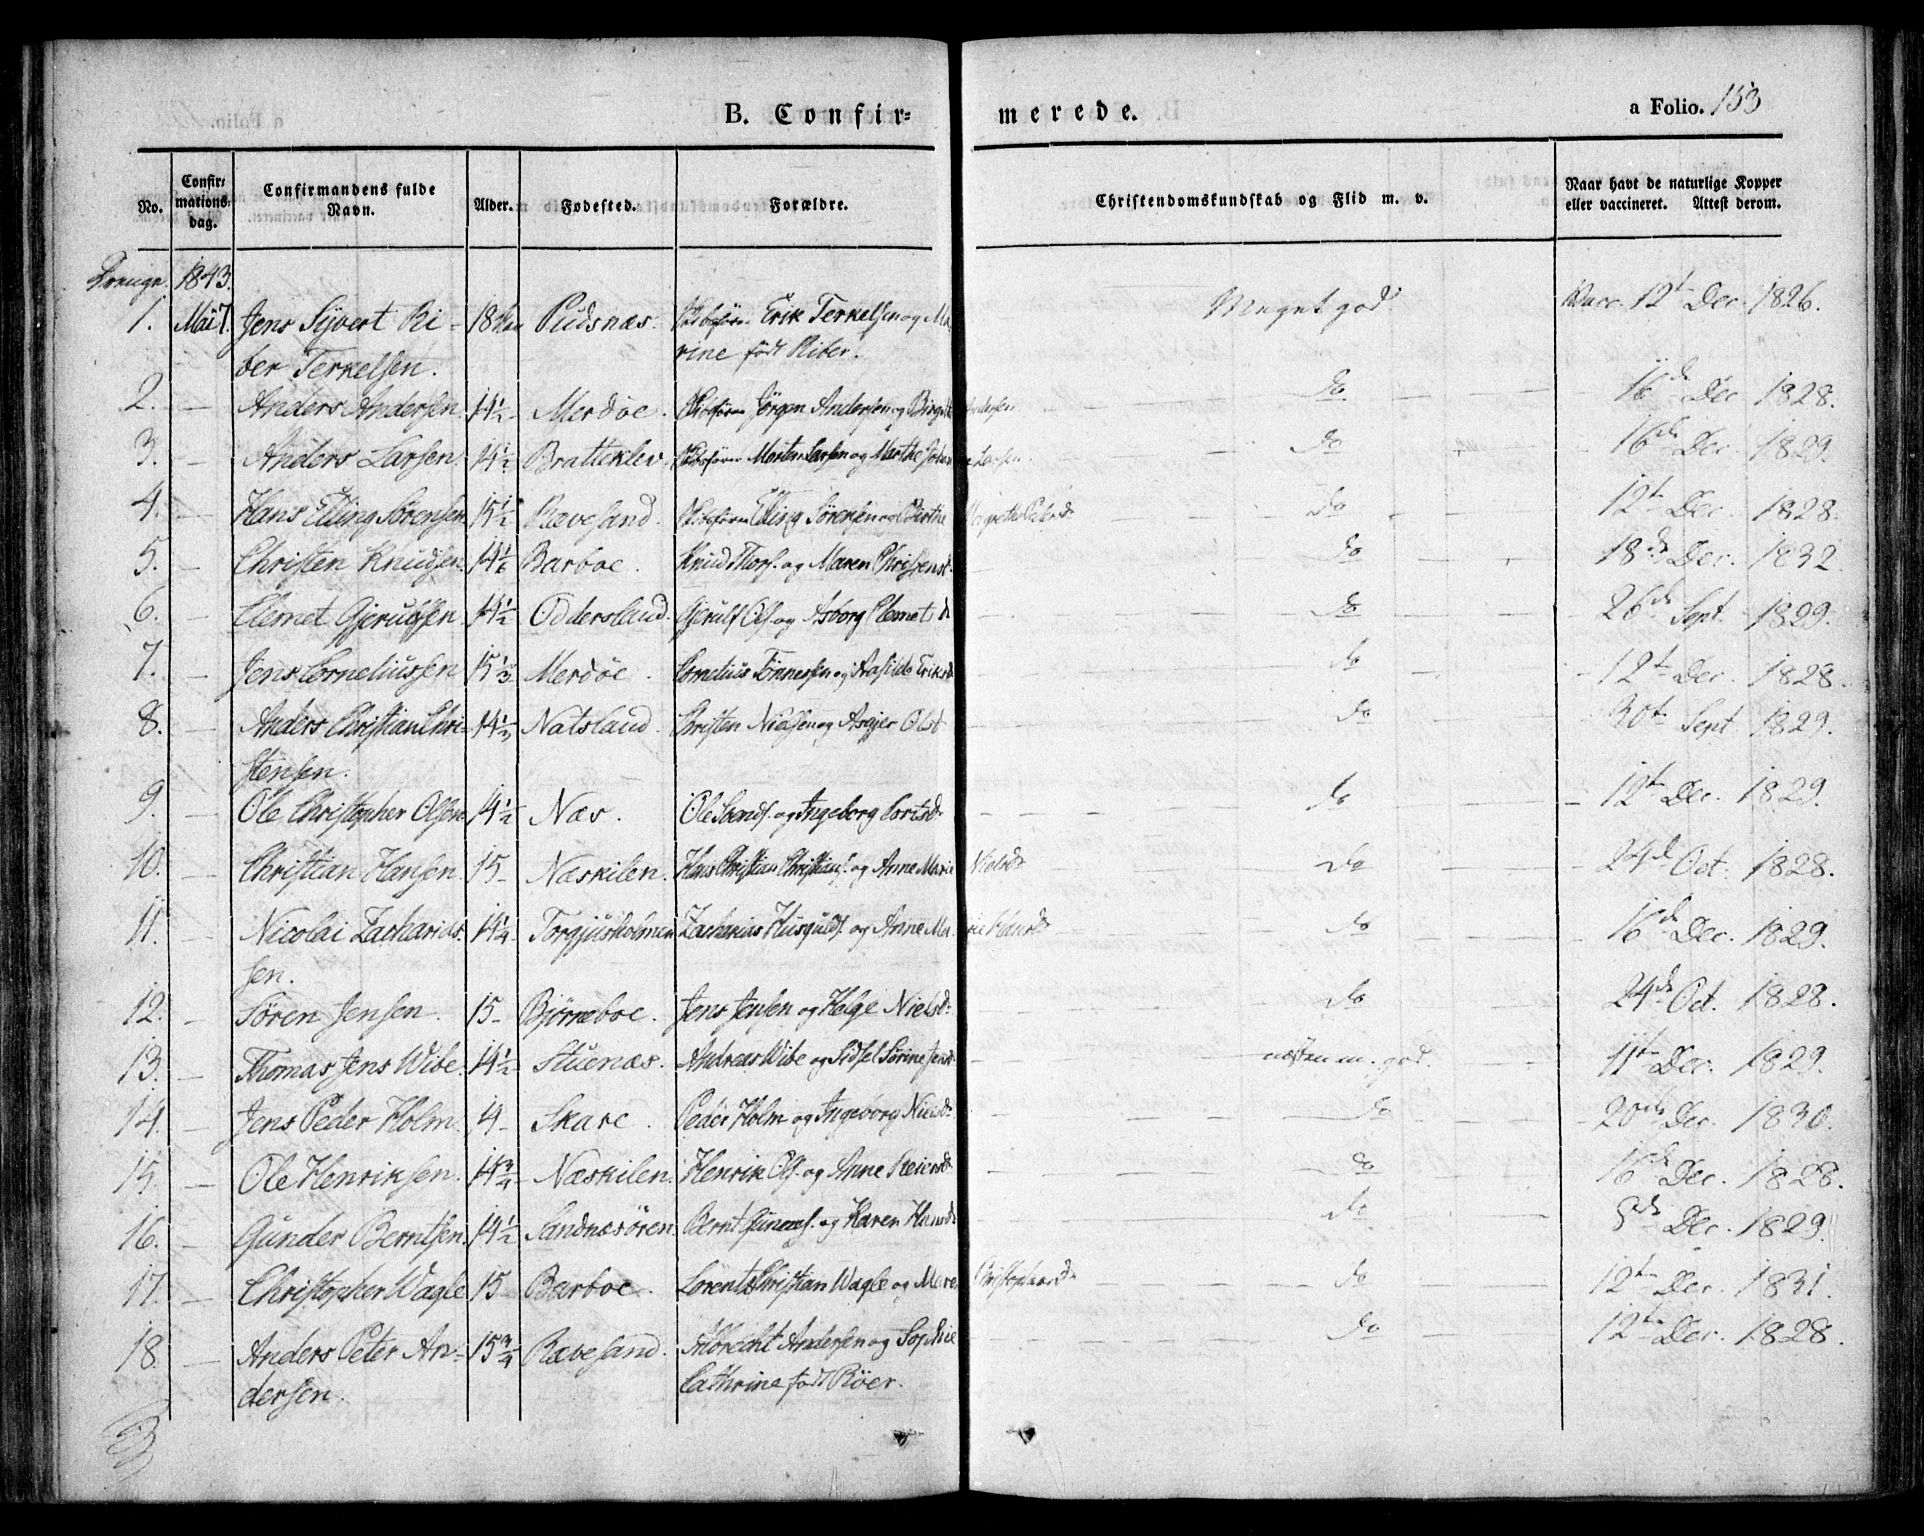 B. Confir-merede.
a Folio. 153
No.
Confir-mations-dag.
Confirmandens fulde Navn.
Alder.
Fødested.
Forældre.
Christendomskundskab og Flid m. v.
Naar havt de naturlige Kopper eller vaccineret. Attest derom.
Drenge. 1843.
1. Mai 7. Jens Syvert Ri- 18 Pudsnæs. Erik Terkelsen og Ma- Meget god. Vacc. 12t Dec. 1826.
ber Terkelsen. rine født Riber.
2. — Anders Andersen 14½ Merdöe. Jörgen Andersen og Birgitte Andersen. do 16de Dec 1828.
3. — Anders Larsen. 14½ Bratteklev. Morten Larsen og Marthe Larsen. do 16de Dec. 1829.
4. — Hans Elling Sörensen 15½ Rævesand. Elling Sörensen og Birthe do 12t Dec. 1828.
5. — Christen Knudsen 14½ Barboe. Knud Thors. og Maren Christensd. do 18de Dec. 1832
6. — Clemet Gjerulfsen 14½ Oddersland. Gjerulf Ols. og Asborg Clemetsd do 26de Sept. 1829.
7. — Jens Corneliussen 15⅓ Merdöe. Cornelius Tönnessen og Aasilde Eriksd do 12t Dec. 1828.
8. — Anders Christian Chri- 14½ Natsland. Christen Nielsen og Asgjer Olsd do 30te Sept 1829.
stensen.
9. — Ole Christopher Olsen 14½ Næs. Ole Svends. og Ingeborg Cortsd do 12te Dec. 1829.
10. — Christian Hansen 15 Næskilen. Hans Christian Christians. og Anne Marie Nielsd do 24de Oct. 1828.
11. — Nicolai Zacharias- 14¼ Torgjusholmen Zacharias Husquld. og Anne Ma-rie Hansd do 16de Dec. 1829.
sen.
12. — Sören Jensen. 15 Björneboe. Jens Jensen og Helge Nielsd do 24de Oct. 1828.
13. — Thomas Jens Wibe. 14½ Stuenæs. Andreas Wibe og Sidsel Sörine Jensd næsten m. god. 11te Dec. 1829.
14. — Jens Peder Holm. 14 Skare. Peder Holm og Ingeborg Nielsd do 20de Dec. 1830.
15. — Ole Henriksen. 14¾ Næskilen. Henrik Ols. og Anne Reiersd do 16de Dec. 1828.
16. — Gunder Berntsen. 14½ Sandnæsören. Bernt Gunders. og Karen Hansd do 8de Dec. 1829.
17. — Christopher Wagle 15 Barboe. Lorents Christian Wagle og Maren Christophersd do 12te Dec. 1831.
18. — Anders Peter An- 15¾ Rævesand. Albrecht Andersen og Sophie do 12te Dec. 1828.
dersen. Cathrine født Röer.